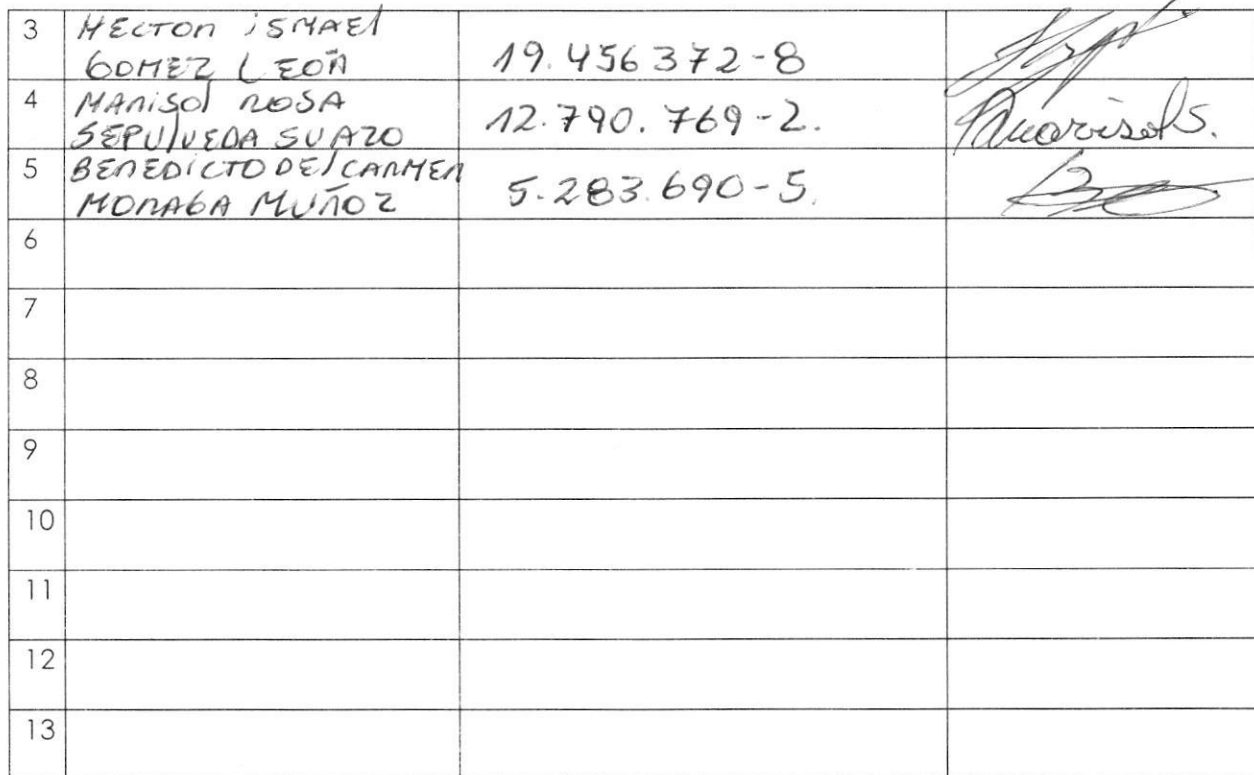 3 HECTOR iSMAEl
GOMEZ LEON 19.456372-8
4 MARiSOl ROSA
SEPUlVEDA SUAZO 12.790.769-2. Marisol S.
5 BENEDICTO DEl CARMEN
MORAGA MUÑOZ 5.283.690-5.
6
7
8
9
10
11
12
13